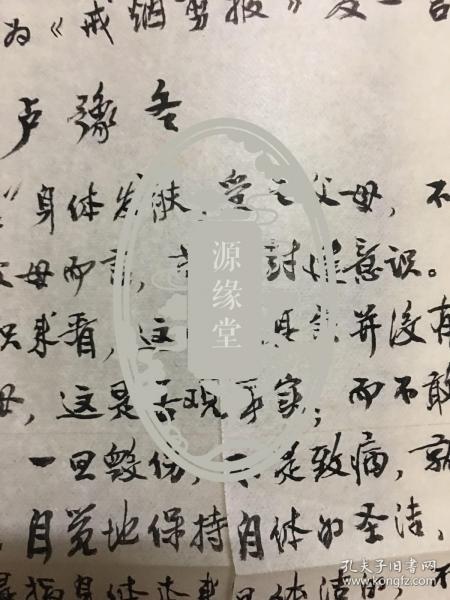 为《戒烟剪报》发一言
卢豫冬
身体发肤,受之父母,不
父母而言,封建意识。
识来看,这其实并没有
母,这是客观事实;而不敢
一旦毁伤,不是致痛,就
自觉地保持自体的圣洁,
是指身体本来是体洁的,不
源缘堂
孔夫子旧书网